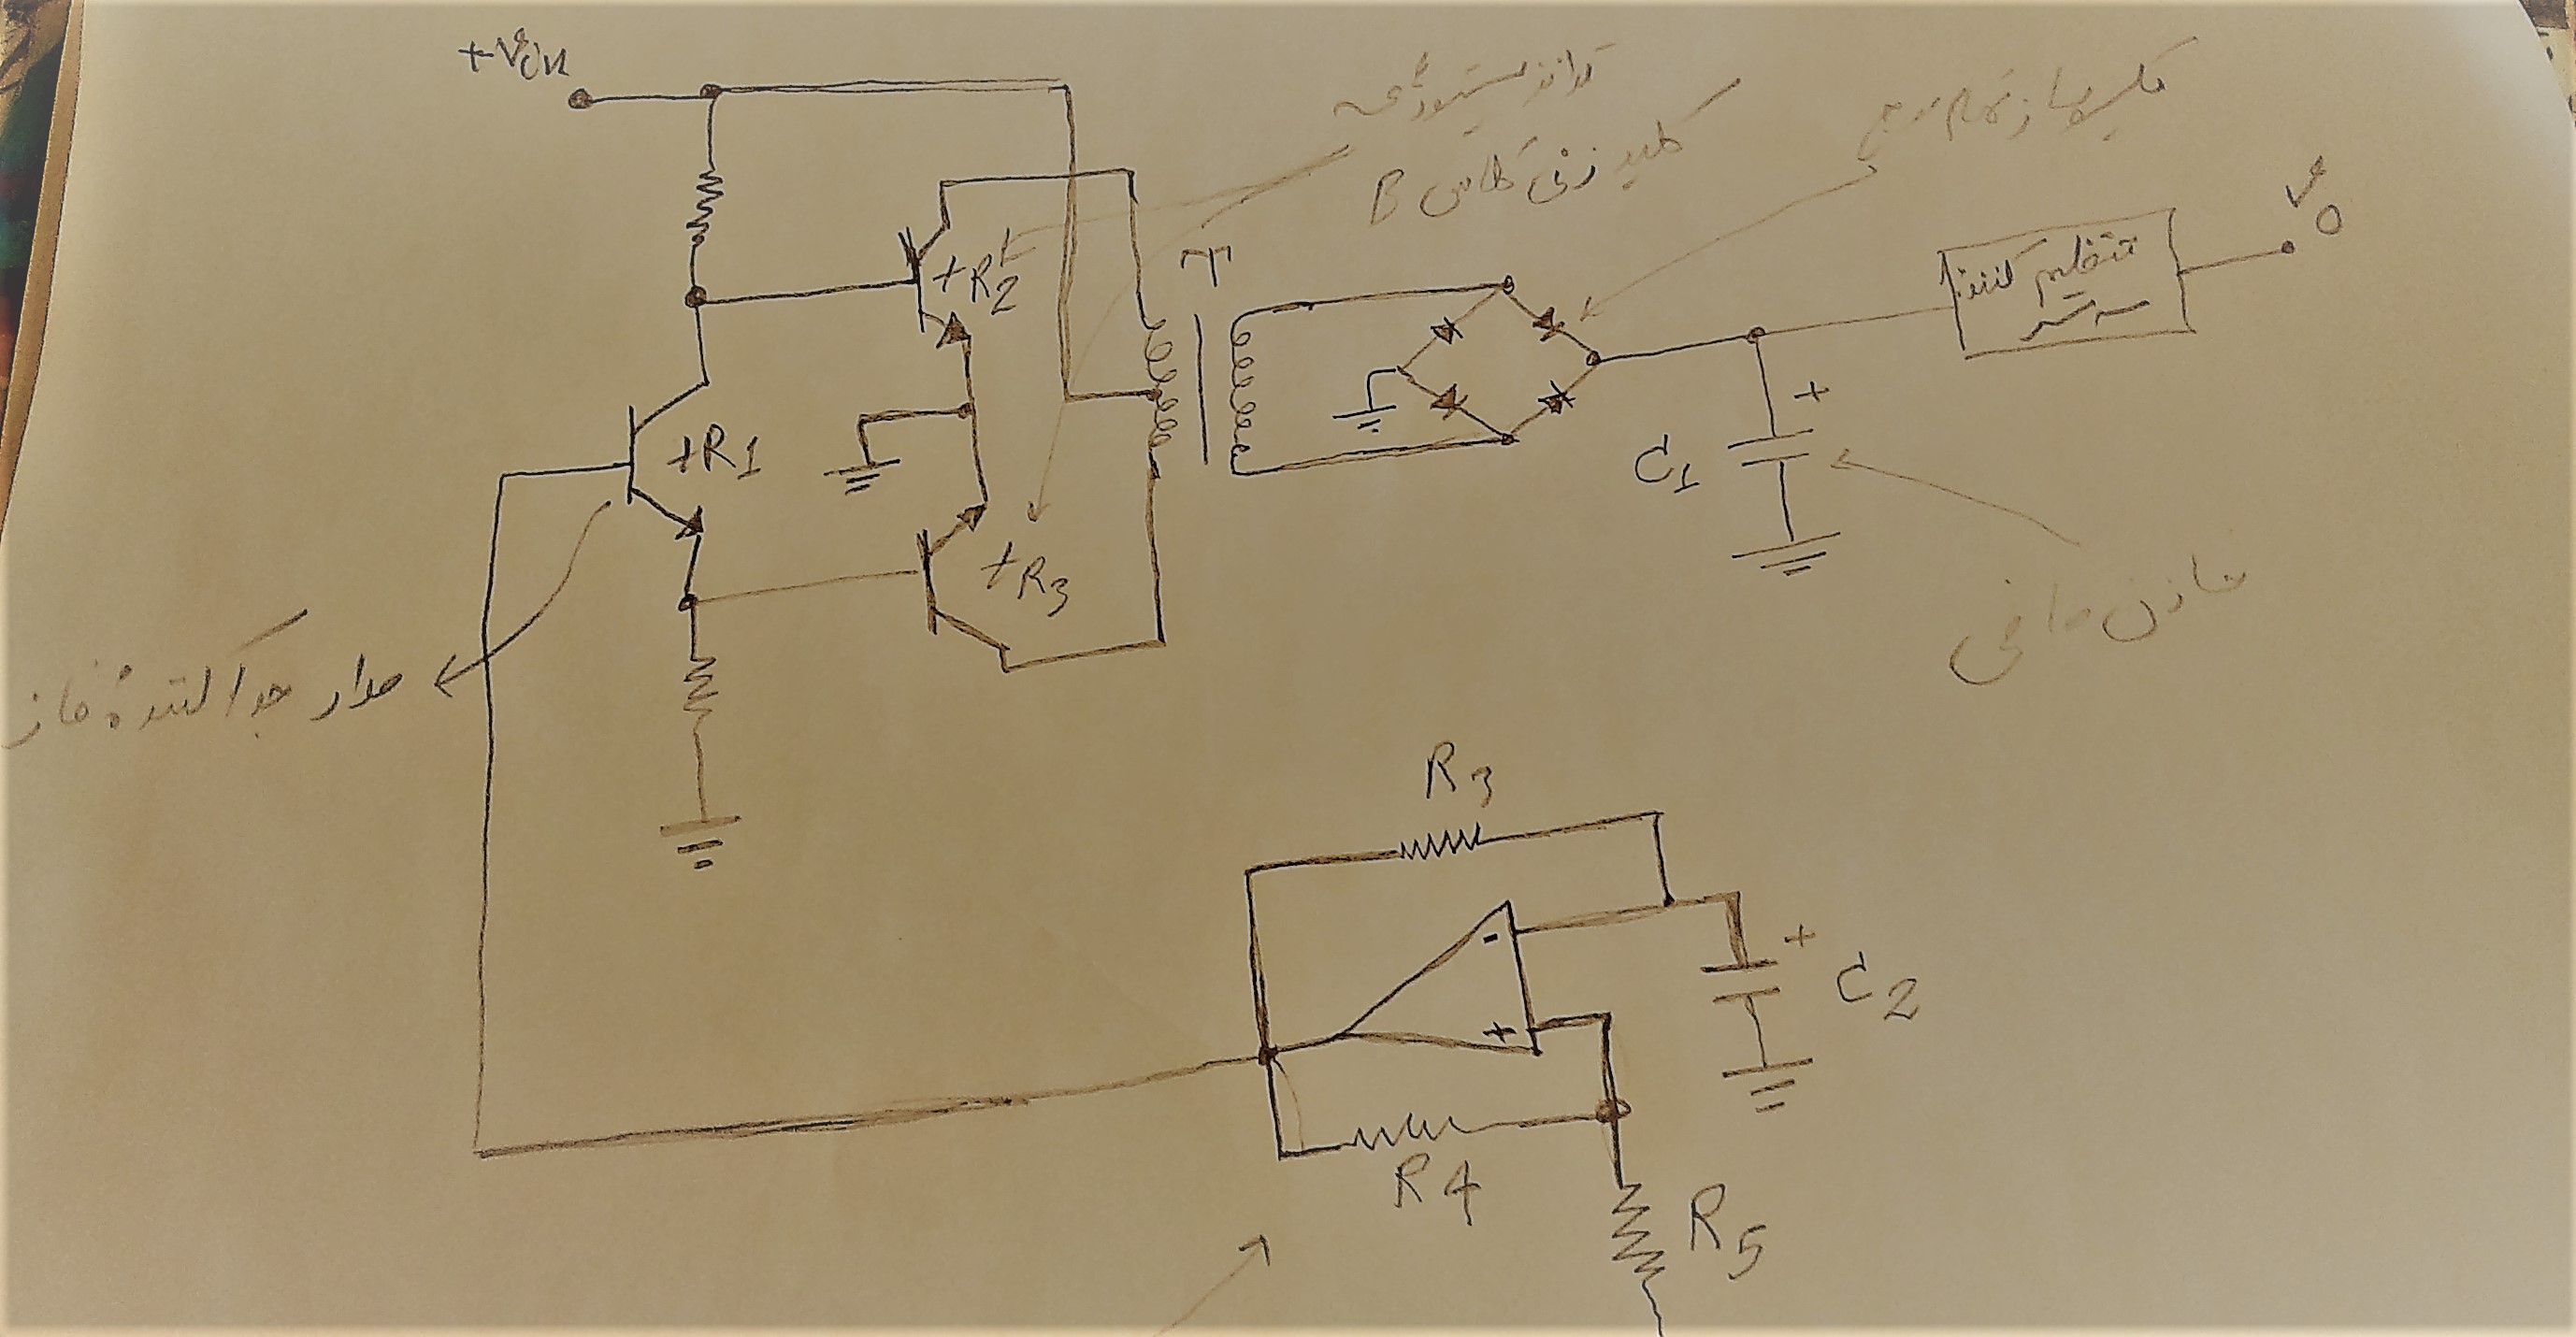 +Vin
ترانزیستورهای
کلید زنی کلاس B
یکسوساز تمام موج
+R2
T
تنظیم کننده
سه سر
Vo
+R1
+R3
+
C1
خازن صافی
مدار جدا کنندهٔ فاز
R3
-
+
+
C2
R4
R5